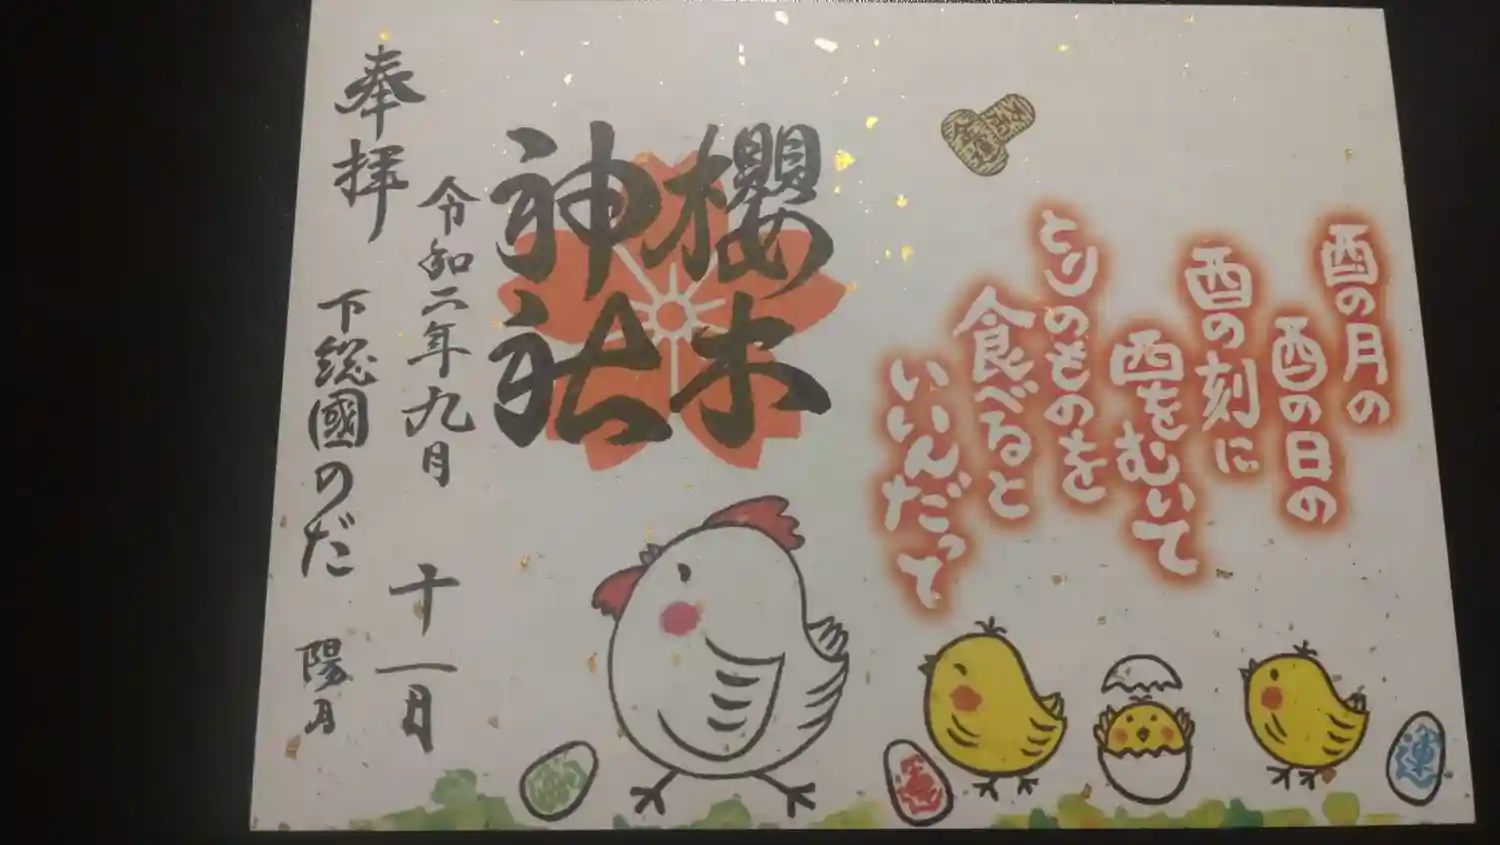 酉の月の
酉の日の
酉の刻に
酉をむいて
とりのものを
食べると
いいんだって
櫻木
神社
令和二年九月
十一日
奉拝
下総國のだ
陽月
運